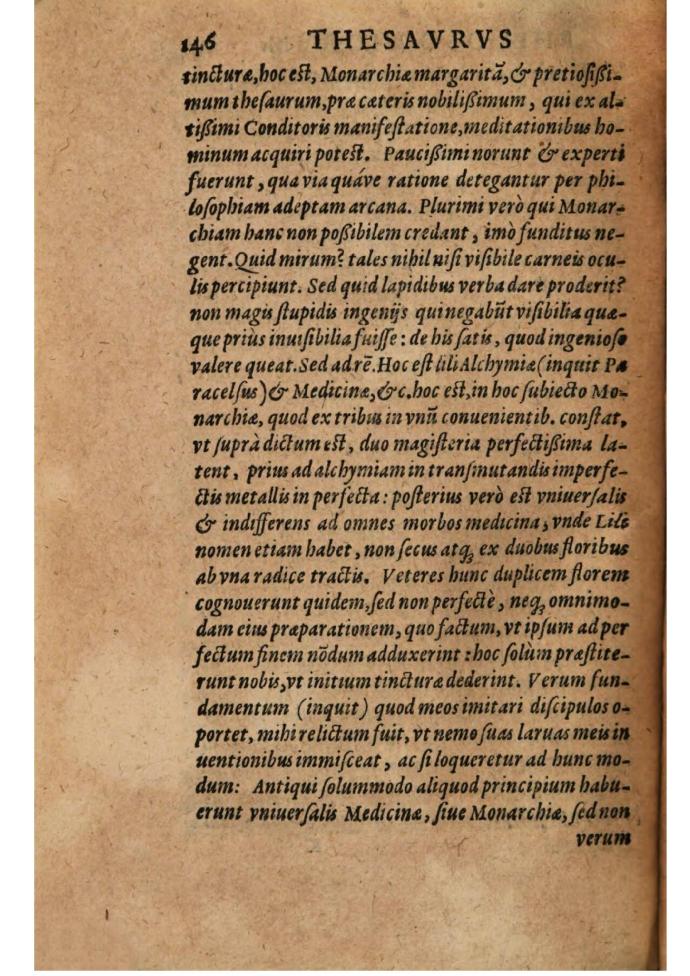 146 THESAVRVS
tincturæ, hoc est, Monarchiæ margaritā, & pretiosißi-
mum thesaurum, præ cæteris nobilißimum, qui ex al-
tißimi Conditoris manifestatione, meditationibus ho-
minum acquiri potest. Paucißimi norunt & experti
fuerunt, qua via quáve ratione detegantur per phi-
losophiam adeptam arcana. Plurimi verò qui Monar-
chiam hanc non poßibilem credant, imò funditus ne-
gent. Quid mirum? tales nihil nisi visibile carneis ocu-
lis percipiunt. Sed quid lapidibus verba dare proderit?
non magis stupidis ingenijs qui negabūt visibilia quæ-
que priùs inuisibilia fuisse: de his satis, quod ingenioso
valere queat. Sed ad rē. Hoc est lili Alchymiæ (inquit Pa
racelsus) & Medicinæ, &c. hoc est, in hoc subiecto Mo-
narchiæ, quod ex tribus in vnū conuenientib. constat,
vt suprà dictum est, duo magisteria perfectißima la-
tent, prius ad alchymiam in transmutandis imperfe-
ctis metallis in perfecta: posterius verò est vniuersalis
& indifferens ad omnes morbos medicina, vnde Lili
nomen etiam habet, non secus atq; ex duobus floribus
ab vna radice tractis. Veteres hunc duplicem florem
cognouerunt quidem, sed non perfectè, neq; omnimo-
dam eius præparationem, quo factum, vt ipsum ad per
fectum finem nōdum adduxerint: hoc solùm præstite-
runt nobis, vt initium tincturæ dederint. Verum fun-
damentum (inquit) quod meos imitari discipulos o-
portet, mihi relictum fuit, vt nemo suas laruas meis in
uentionibus immisceat, ac si loqueretur ad hunc mo-
dum: Antiqui solummodo aliquod principium habu-
erunt vniuersalis Medicinæ, siue Monarchiæ, sed non
verum